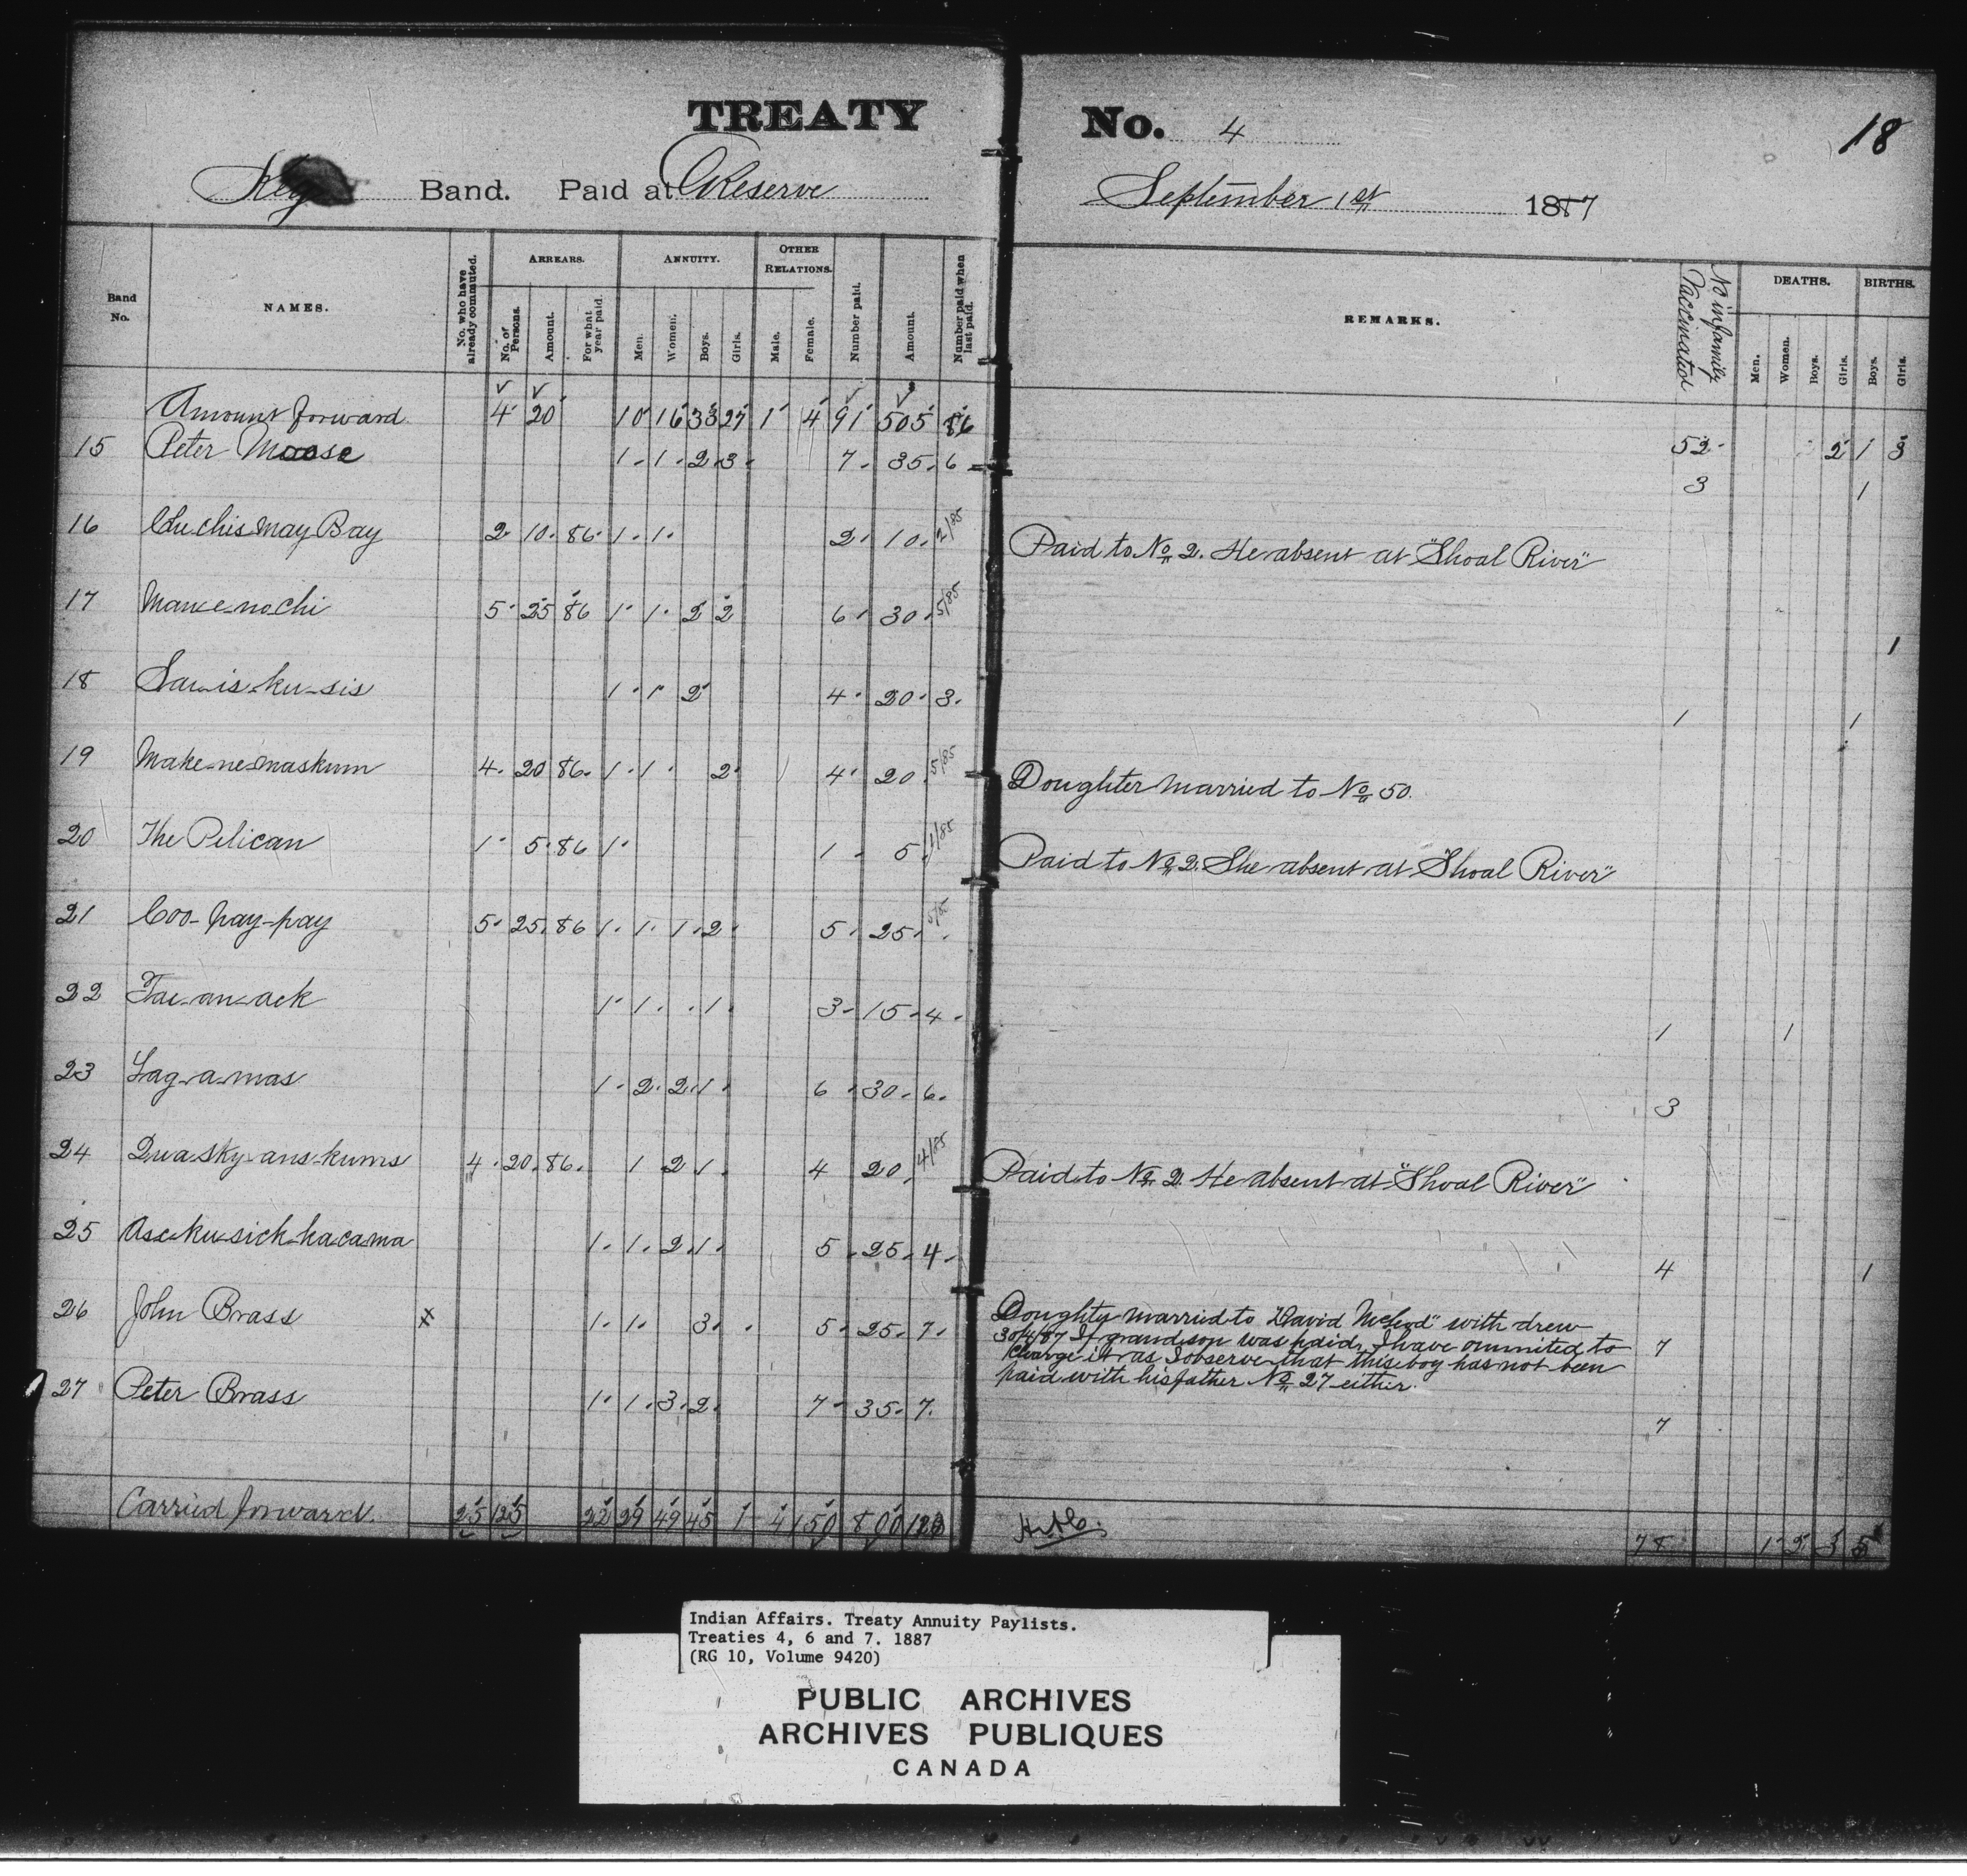 TREATY No. 4
18
Key Band. Paid at Reserve September 1st 1887
Band No. NAMES. No. who have already commuted. ARREARS. No. of Persons. Amount. For what year paid. ANNUITY. Men. Women. Boys. Girls. OTHER RELATIONS. Male. Female. Number paid. Amount. Number paid when last paid. REMARKS. No in family Vaccinated DEATHS. Men. Women. Boys. Girls. BIRTHS. Boys. Girls.
Amount forward 4 20 10 16 38 27 1 4 91 505 86 52 2 1 3
15 Peter Moose 1 1 2 3 7 35 6 3 1
16 Chuchis may Bay 2 10 86 1 1 2 10 2/85 Paid to No 2. He absent at "Shoal River"
17 5 25 86 1 1 2 2 6 30 5/85 1
18 1 1 2 4 20 3 1 1
19 Make-ne-maskum 4 20 86 1 1 2 4 20 5/85 Doughter married to No 50.
20 The Pelican 1 5 86 1 1 5 1/85 Paid to No 2. She absent at "Shoal River"
21 Coo-pay-pay 5 25 86 1 1 1 2 5 25 5/85
22 1 1 1 3 15 4 1 1
23 1 2 2 1 6 30 6 3
24 4 20 86 1 2 1 4 20 4/85 Paid to No 2. He absent at "Shoal River"
25 1 1 2 1 5 25 4 4 1
26 John Brass x 1 1 3 5 25 7 Doughty married to "David McLeod" with drew
30/4/87 If grandson was paid, I have ommited to 7
charge it as I observe that this boy has not been
paid with his father No 27 either.
27 Peter Brass 1 1 3 2 7 35 7 7
Carried forward 25 125 22 29 49 45 1 4 150 800 78 1 2 3 5
Indian Affairs. Treaty Annuity Paylists.
Treaties 4, 6 and 7. 1887
(RG 10, Volume 9420)
PUBLIC ARCHIVES
ARCHIVES PUBLIQUES
CANADA